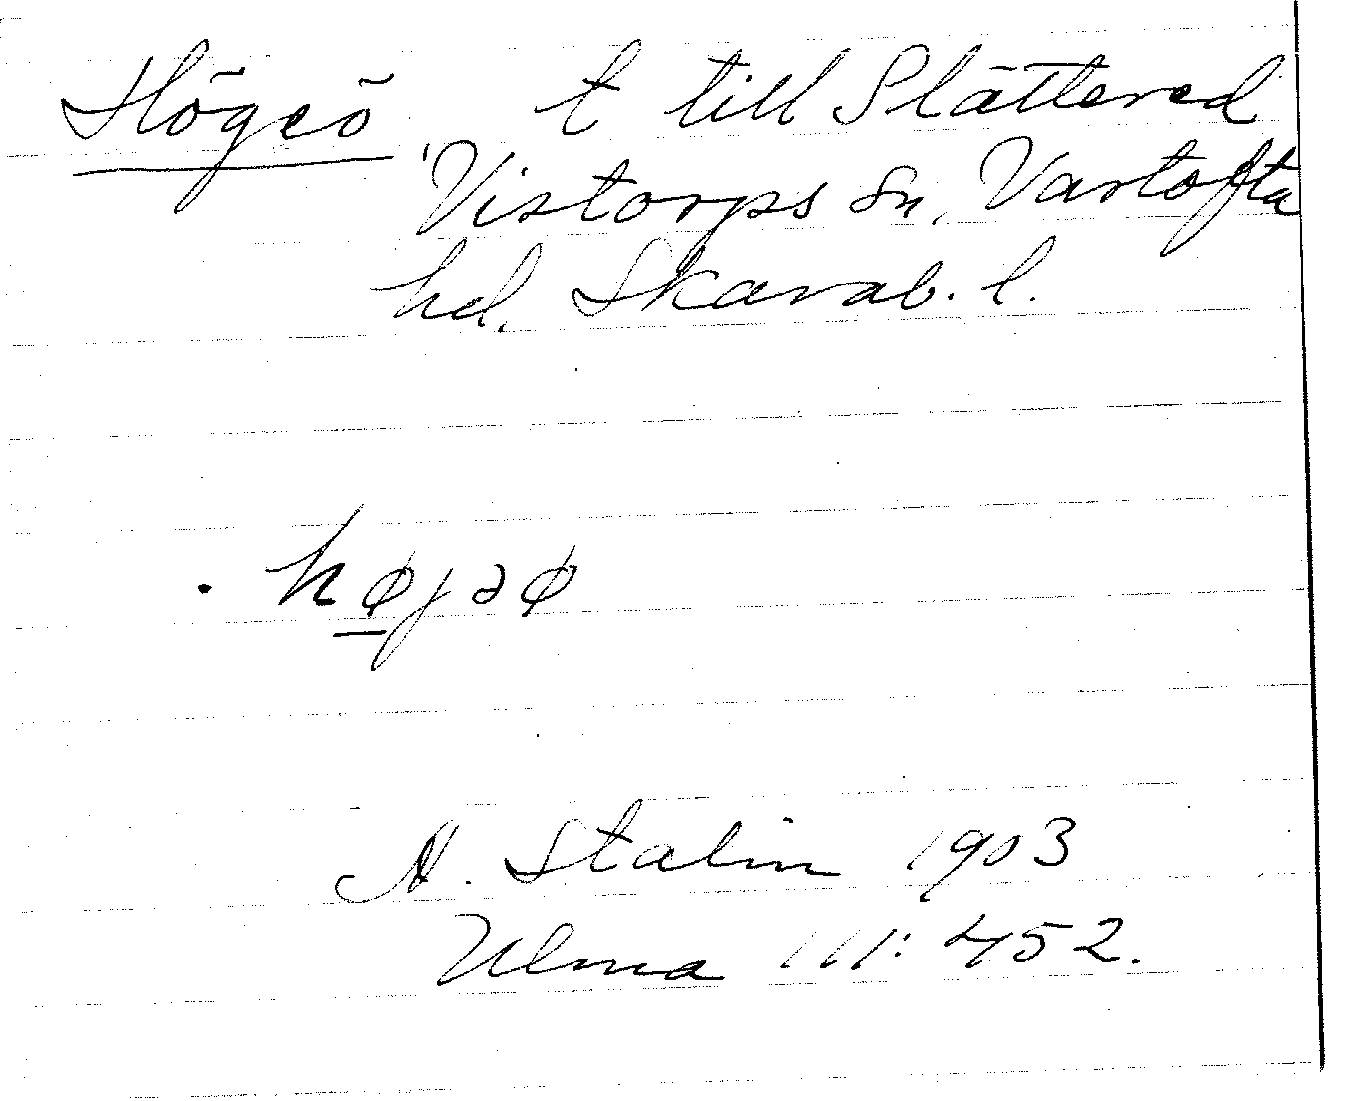 Högeö t till Slättered
Vistorps sn, Vartofta
hd. Skarab. l.
. højəø
A. Stalin 1903
Ulma 111:452.